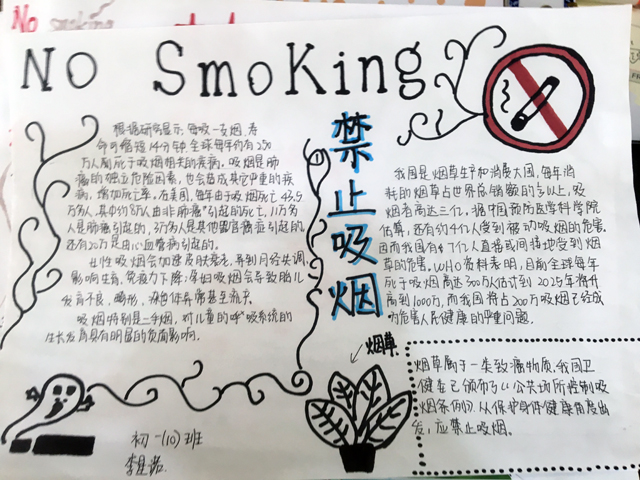 No smoking
No SmoKing
禁止吸烟
根据研究显示,每吸一支烟,寿
命可缩短14分钟.全球每年约有250
万人死于吸烟相关的疾病,吸烟是肺
癌的独立危险因素,也会造成其它严重的疾
病,增加死亡率,在美国,每年由于吸烟死亡43.5
万人,其中约8万人由非肺癌引起的死亡,11万名
人是肺癌引起的,3万名人是其他器官癌症引起的,
还有20万是由心血管病引起的.
女性吸烟会加速皮肤衰老,导到月经失调,
影响生育,免疫力下降;孕妇吸烟会导致胎儿
发育不良,畸形,染色体异常甚至流产.
吸烟特别是二手烟,对儿童的呼吸系统的
生长发育具有明显的负面影响.
我国是烟草生产和消费大国,每年消
耗的烟草占世界总销额的以上,吸
烟者高达三亿,据中国预防医学科学院
估算,还有约4亿人受到被动吸烟的危害.
因而我国有7亿人直接或间接地受到烟
草的危害,WHO资料表明,目前全球每年
死于吸烟高达300万人估计到2025年将升
高到1000万,而我国将占200万吸烟已经成
为危害人民健康的严重问题.
烟草
烟草属于一类致癌物质,我国卫
健委已颁布了《公共场所控制吸
烟条例》,从保护身体健康角度出
发,应禁止吸烟。
初一(10)班
李